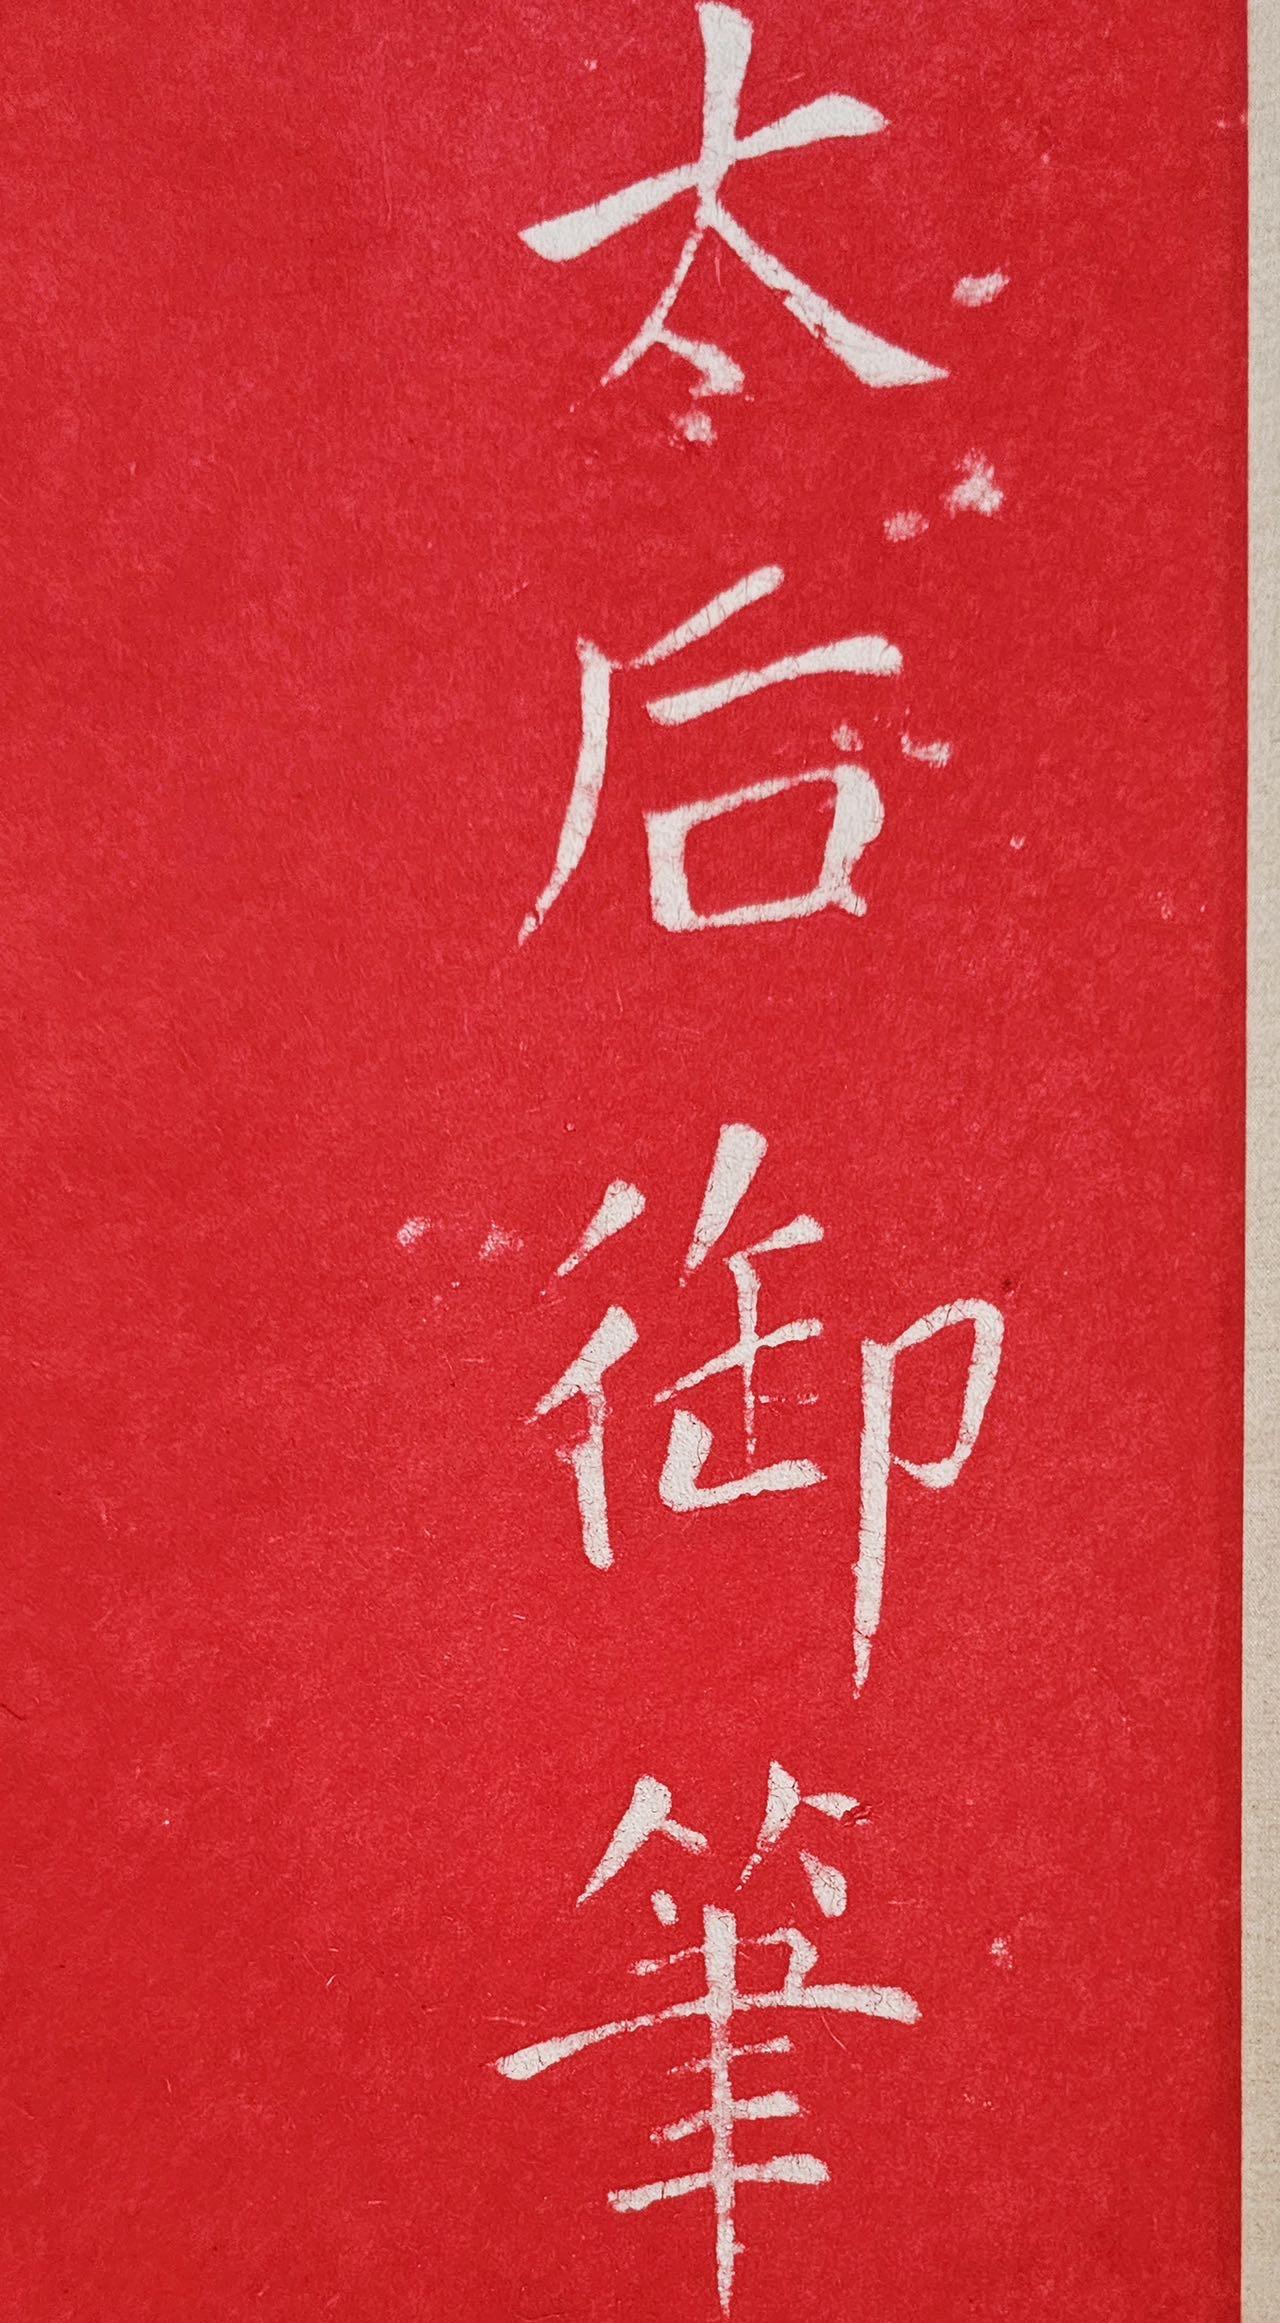 太后御筆